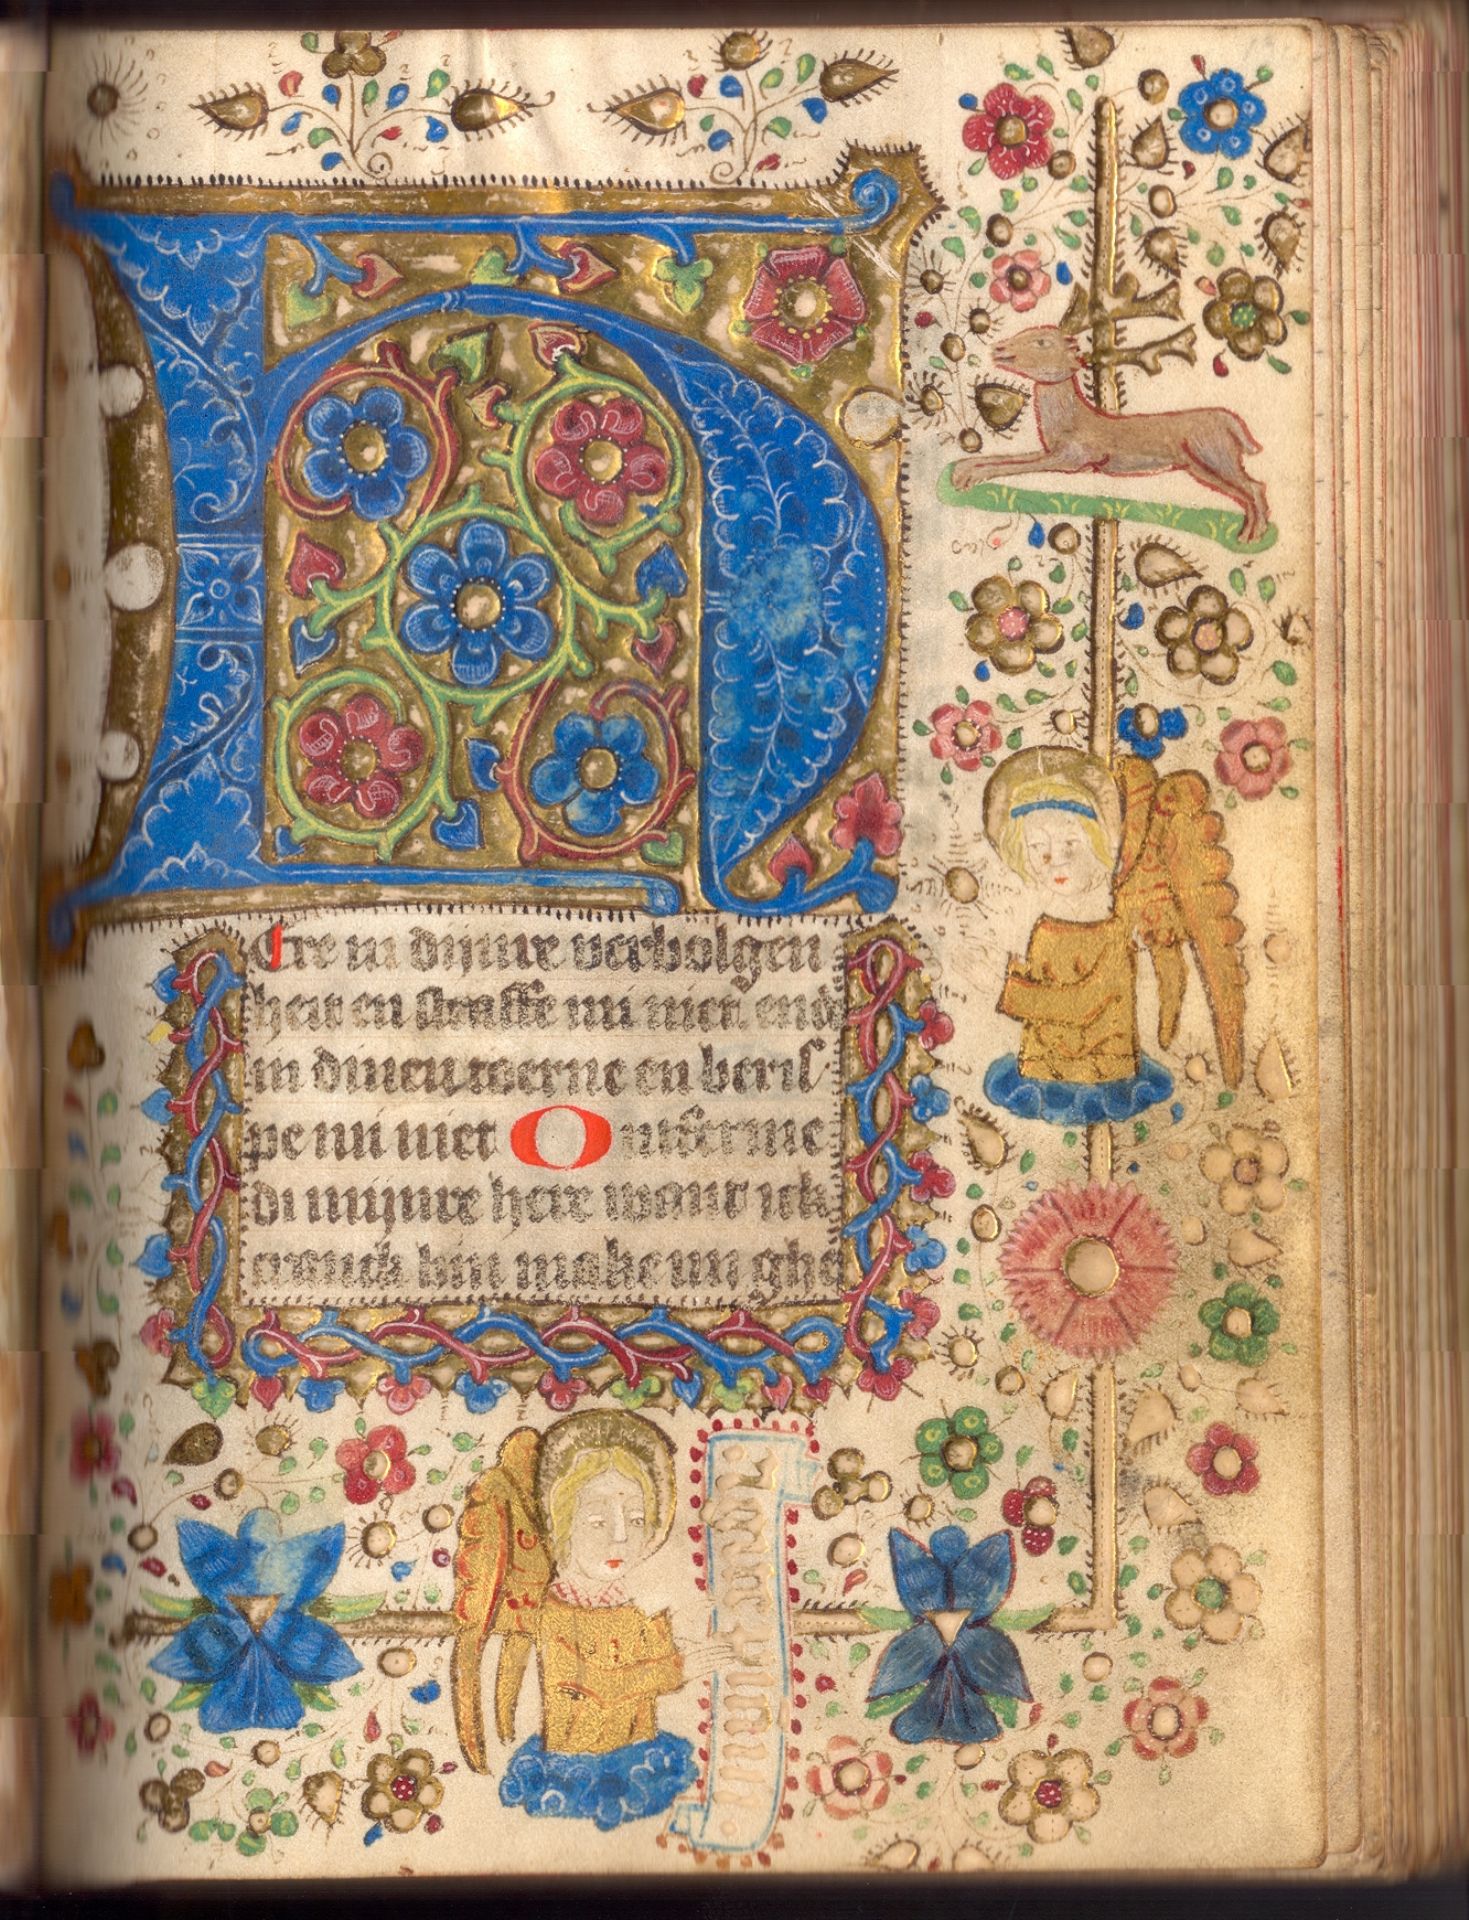 H
Ere in dijnre verbolgen
heit en straffe mi niet. ende
in dinen toerne en beris
pe mi niet Ontferme
di mijnre here want ick
cranck bin make mi ghe